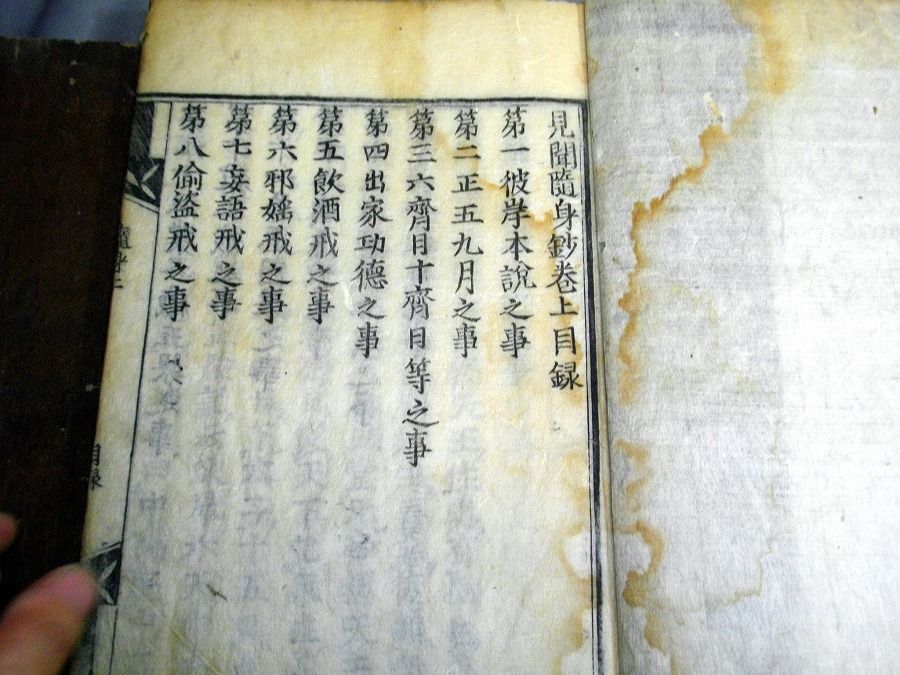 見聞隨身鈔卷上目録
第一彼岸本說之事
第二正五九月之事
第三六齊日十齊日等之事
第四出家功德之事
第五飲酒戒之事
第六邪婬戒之事
第七妄語戒之事
第八偷盜戒之事
目録